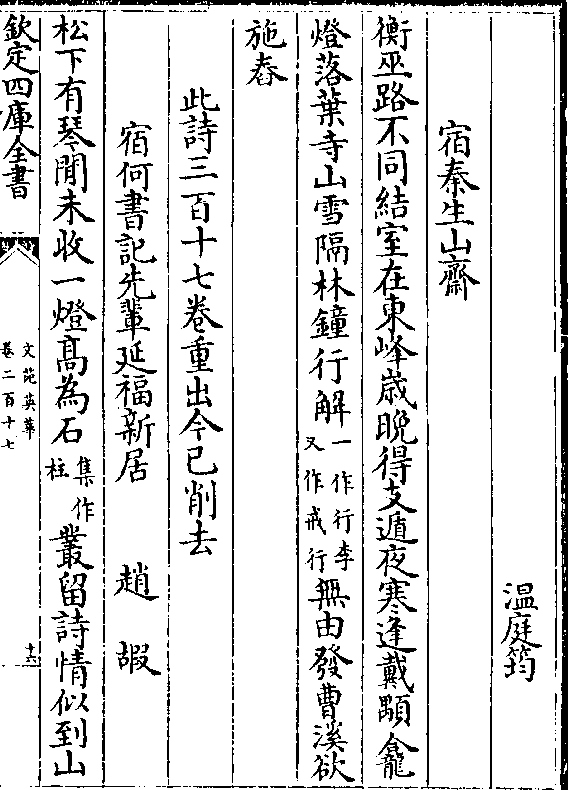 溫庭筠
宿秦生山齋
衡巫路不同結室在東峰歳晩得支遁夜寒逢戴顒龕
燈落葉寺山雪隔林鐘行解一作行李又作戒行無由發曹溪欲
施舂
此詩三百十七卷重出今已削去
宿何書記先輩延福新居 趙嘏
松下有琴閒未收一燈髙為石集作柱叢留詩情似到山
欽定四庫全書
文苑英華
卷二百十七
十六